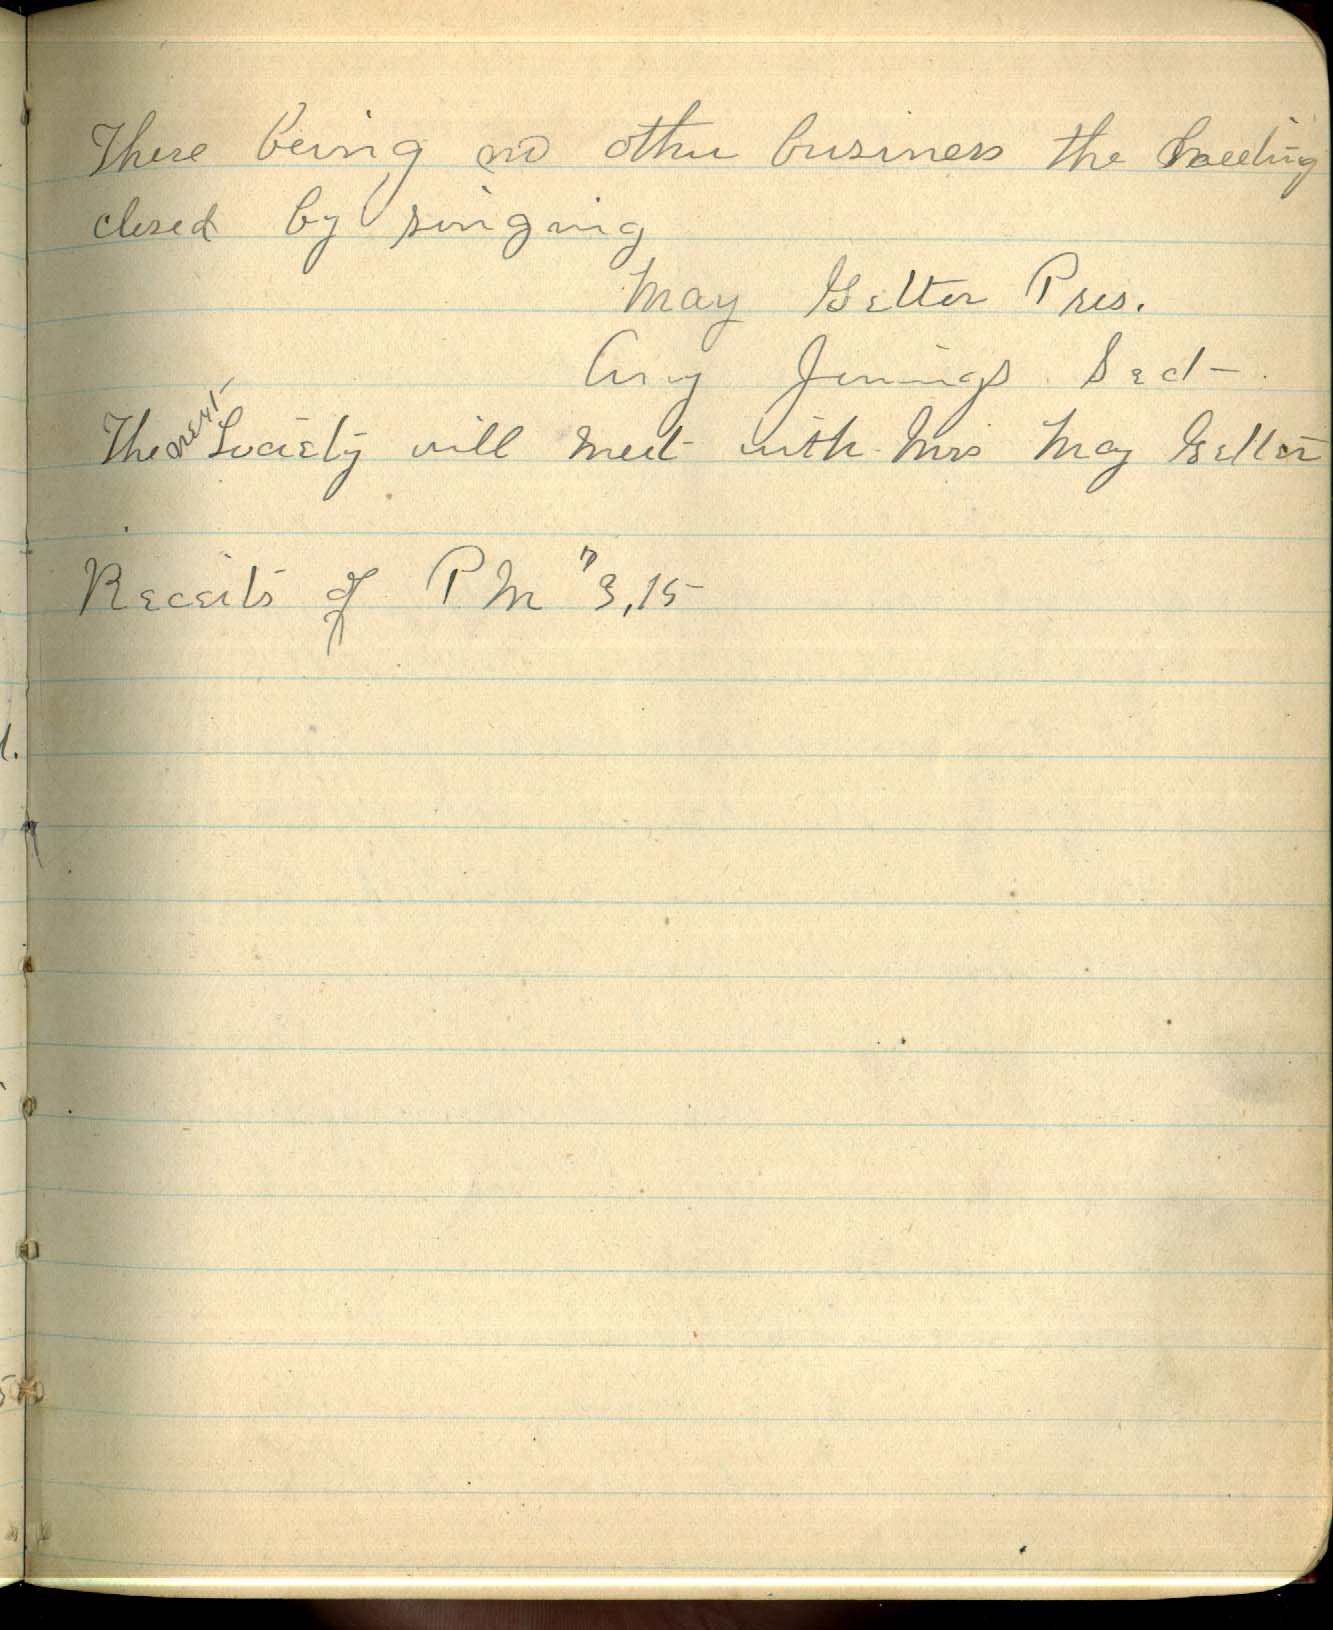 There being no other business the meeting
closed by singing
May Getter Pres.
Jennings Sect
The next Society will meet with Mrs May Getter
Receits of P M " 3,15